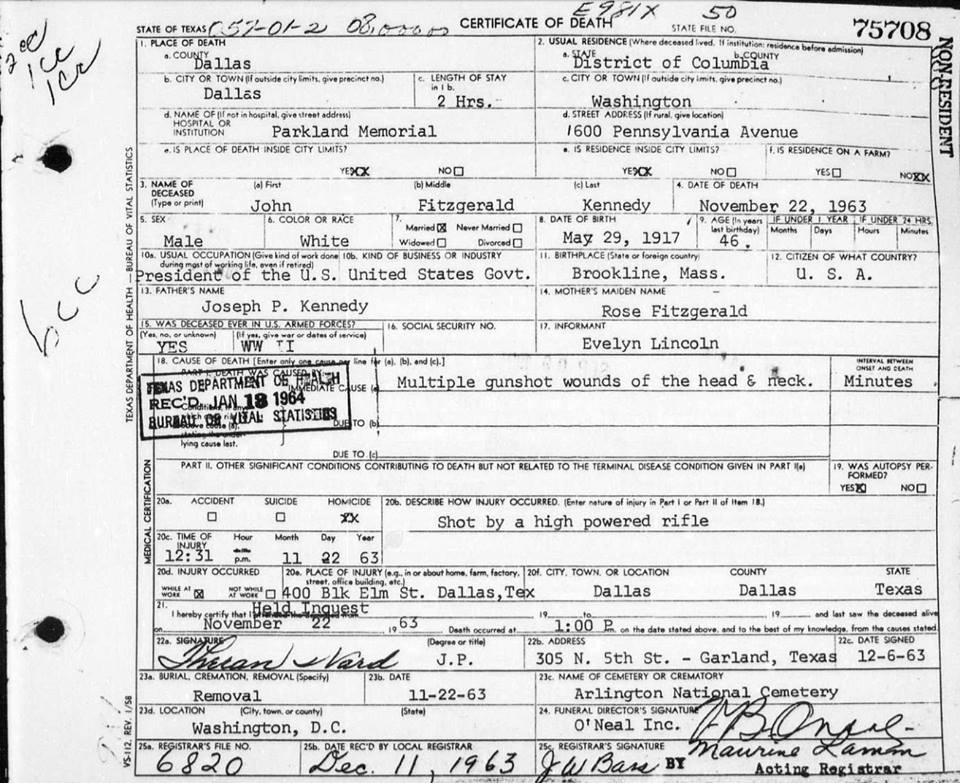 E981X 50
STATE OF TEXAS 057-01-2 CERTIFICATE OF DEATH STATE FILE NO. 75708
NON-RESIDENT
1. PLACE OF DEATH
a. COUNTY
Dallas
2. USUAL RESIDENCE (Where deceased lived. If institution: residence before admission)
a. STATE b. COUNTY
District of Columbia
b. CITY OR TOWN (If outside city limits, give precinct no.)
Dallas
c. LENGTH OF STAY in 1 b.
2 Hrs.
c. CITY OR TOWN (If outside city limits, give precinct no.)
Washington
d. NAME OF (If not in hospital, give street address)
HOSPITAL OR
INSTITUTION Parkland Memorial
d. STREET ADDRESS (If rural, give location)
1600 Pennsylvania Avenue
e. IS PLACE OF DEATH INSIDE CITY LIMITS?
YES XX NO
e. IS RESIDENCE INSIDE CITY LIMITS?
YES XX NO
f. IS RESIDENCE ON A FARM?
YES NO XX
3. NAME OF DECEASED (Type or print)
(a) First (b) Middle (c) Last
John Fitzgerald Kennedy
4. DATE OF DEATH
November 22, 1963
5. SEX
Male
6. COLOR OR RACE
White
7.
Married X Never Married
Widowed Divorced
8. DATE OF BIRTH
May 29, 1917
9. AGE (In years last birthday)
46.
IF UNDER 1 YEAR
Months Days
IF UNDER 24 HRS.
Hours Minutes
10a. USUAL OCCUPATION (Give kind of work done during most of working life, even if retired)
President of the U.S.
10b. KIND OF BUSINESS OR INDUSTRY
United States Govt.
11. BIRTHPLACE (State or foreign country)
Brookline, Mass.
12. CITIZEN OF WHAT COUNTRY?
U. S. A.
13. FATHER'S NAME
Joseph P. Kennedy
14. MOTHER'S MAIDEN NAME
Rose Fitzgerald
15. WAS DECEASED EVER IN U.S. ARMED FORCES?
(Yes, no, or unknown) (If yes, give war or dates of service)
YES WW II
16. SOCIAL SECURITY NO.
17. INFORMANT
Evelyn Lincoln
18. CAUSE OF DEATH [Enter only one cause per line for (a), (b), and (c).]
PART I. DEATH WAS CAUSED BY:
IMMEDIATE CAUSE (a) Multiple gunshot wounds of the head & neck.
INTERVAL BETWEEN ONSET AND DEATH
Minutes
TEXAS DEPARTMENT OF HEALTH
REC'D. JAN 13 1964
BUREAU OF VITAL STATISTICS
Conditions, if any,
lying cause last.
DUE TO (b)
DUE TO (c)
PART II. OTHER SIGNIFICANT CONDITIONS CONTRIBUTING TO DEATH BUT NOT RELATED TO THE TERMINAL DISEASE CONDITION GIVEN IN PART I(a)
19. WAS AUTOPSY PERFORMED?
YES X NO
20a. ACCIDENT SUICIDE HOMICIDE
XX
20b. DESCRIBE HOW INJURY OCCURRED. (Enter nature of injury in Part I or Part II of Item 18.)
Shot by a high powered rifle
20c. TIME OF INJURY Hour Month Day Year
12:31 p.m. 11 22 63
20d. INJURY OCCURRED
WHILE AT WORK X NOT WHILE AT WORK
20e. PLACE OF INJURY (e.g., in or about home, farm, factory, street, office building, etc.)
400 Blk Elm St. Dallas,Tex
20f. CITY, TOWN, OR LOCATION COUNTY STATE
Dallas Dallas Texas
21. Held Inquest
I hereby certify that I 19 to 19 and last saw the deceased alive
on November 22 19 63 Death occurred at 1:00 P m. on the date stated above, and to the best of my knowledge, from the causes stated.
22a. SIGNATURE (Degree or title)
Theran Ward J.P.
22b. ADDRESS
305 N. 5th St. - Garland, Texas
22c. DATE SIGNED
12-6-63
23a. BURIAL, CREMATION, REMOVAL (Specify)
Removal
23b. DATE
11-22-63
23c. NAME OF CEMETERY OR CREMATORY
Arlington National Cemetery
23d. LOCATION (City, town, or county) (State)
Washington, D.C.
24. FUNERAL DIRECTOR'S SIGNATURE
O'Neal Inc.
25a. REGISTRAR'S FILE NO.
6820
25b. DATE REC'D BY LOCAL REGISTRAR
Dec. 11, 1963
25c. REGISTRAR'S SIGNATURE
J W Bass BY
Acting Registrar
TEXAS DEPARTMENT OF HEALTH — BUREAU OF VITAL STATISTICS
MEDICAL CERTIFICATION
VS-112, REV. 1/58